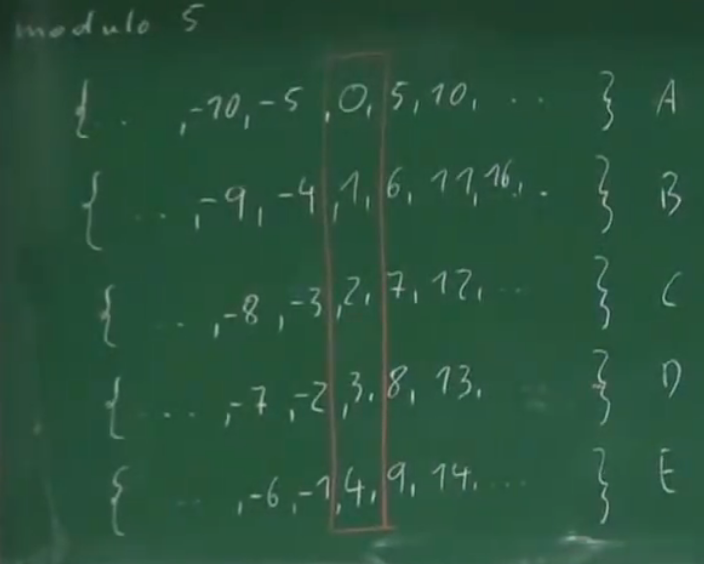 modulo 5
{ . . ,-10, -5 ,0, 5, 10, . . . } A
{ . . . ,-9, -4 ,1, 6, 11, 16, . . } B
{ . . . ,-8 ,-3 ,2, 7, 12, . . . } C
{ . . . ,-7 ,-2 ,3, 8, 13, . . . } D
{ . . . ,-6, -1 ,4, 9, 14, . . . } E